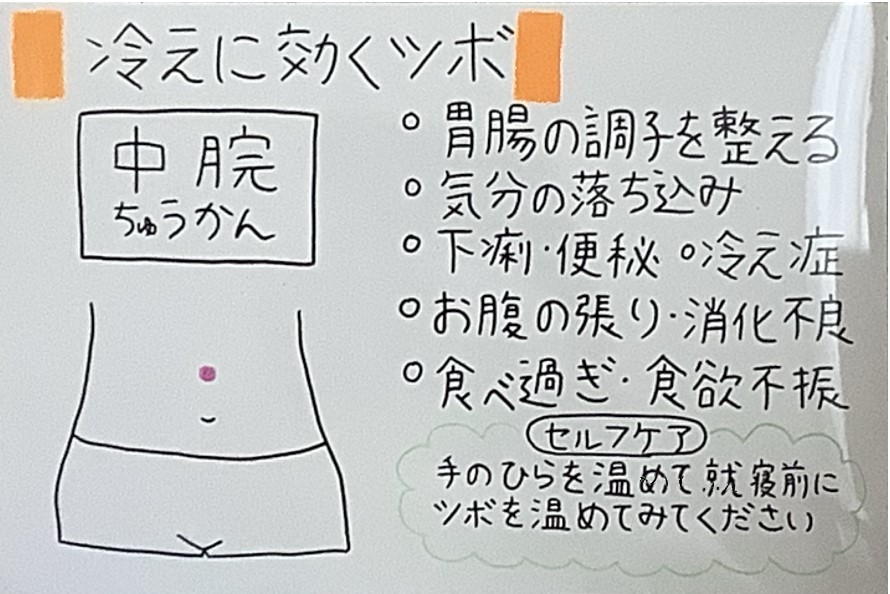 冷えに効くツボ
中脘
ちゅうかん
○ 胃腸の調子を整える
○ 気分の落ち込み
○ 下痢・便秘 ○冷え症
○ お腹の張り・消化不良
○ 食べ過ぎ・食欲不振
セルフケア
手のひらを温めて就寝前に
ツボを温めてみてください